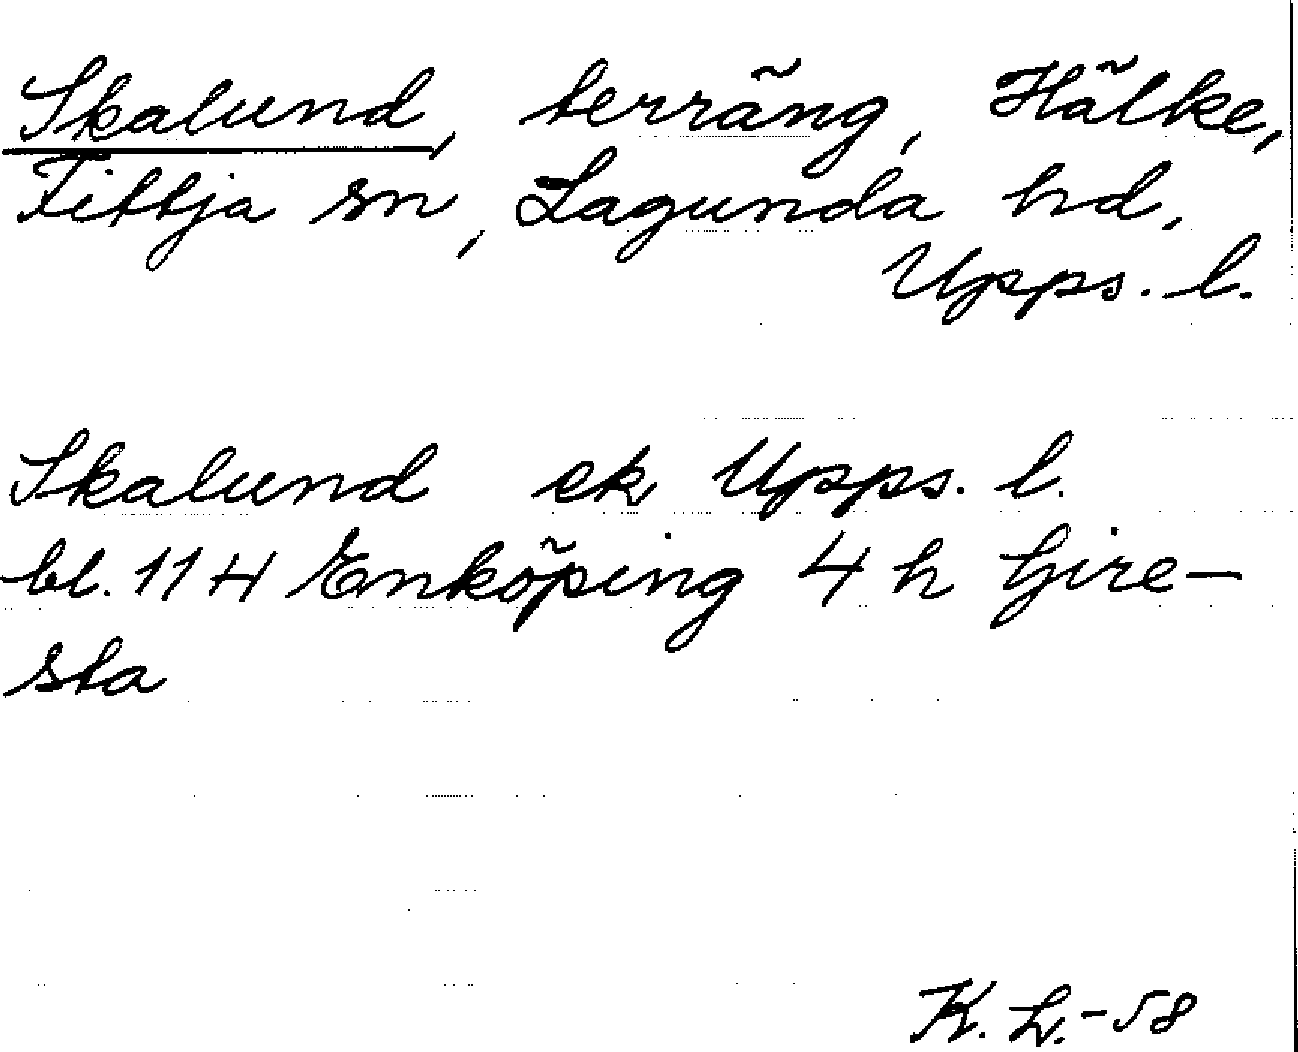 Skalund, terräng, Hälke,
Fittja sn, Lagunda hd,
Upps. l.
Skalund ek Upps. l.
bl. 11 H Enköping 4 h Gire-
sta
K. L. -58